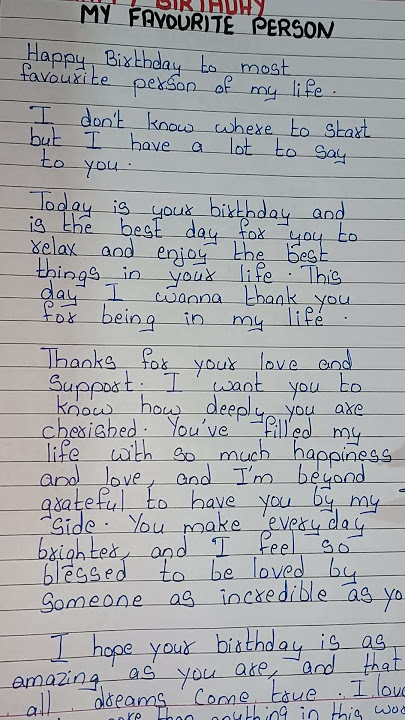 BIRTHDAY
MY FAVOURITE PERSON
Happy Birthday to most
favourite person of my life.
I don't know where to start
but I have a lot to say
to you.
Today is your birthday and
is the best day for you to
relax and enjoy the best
things in your life. This
day I wanna thank you
for being in my life.
Thanks for your love and
Support. I want you to
know how deeply you are
cherished. You've filled my
life with so much happiness
and love, and I'm beyond
grateful to have you by my
side. You make every day
brighter, and I feel so
blessed to be loved by
someone as incredible as yo
I hope your birthday is as
amazing as you are, and that
all dreams come true. I love
more than anything in this